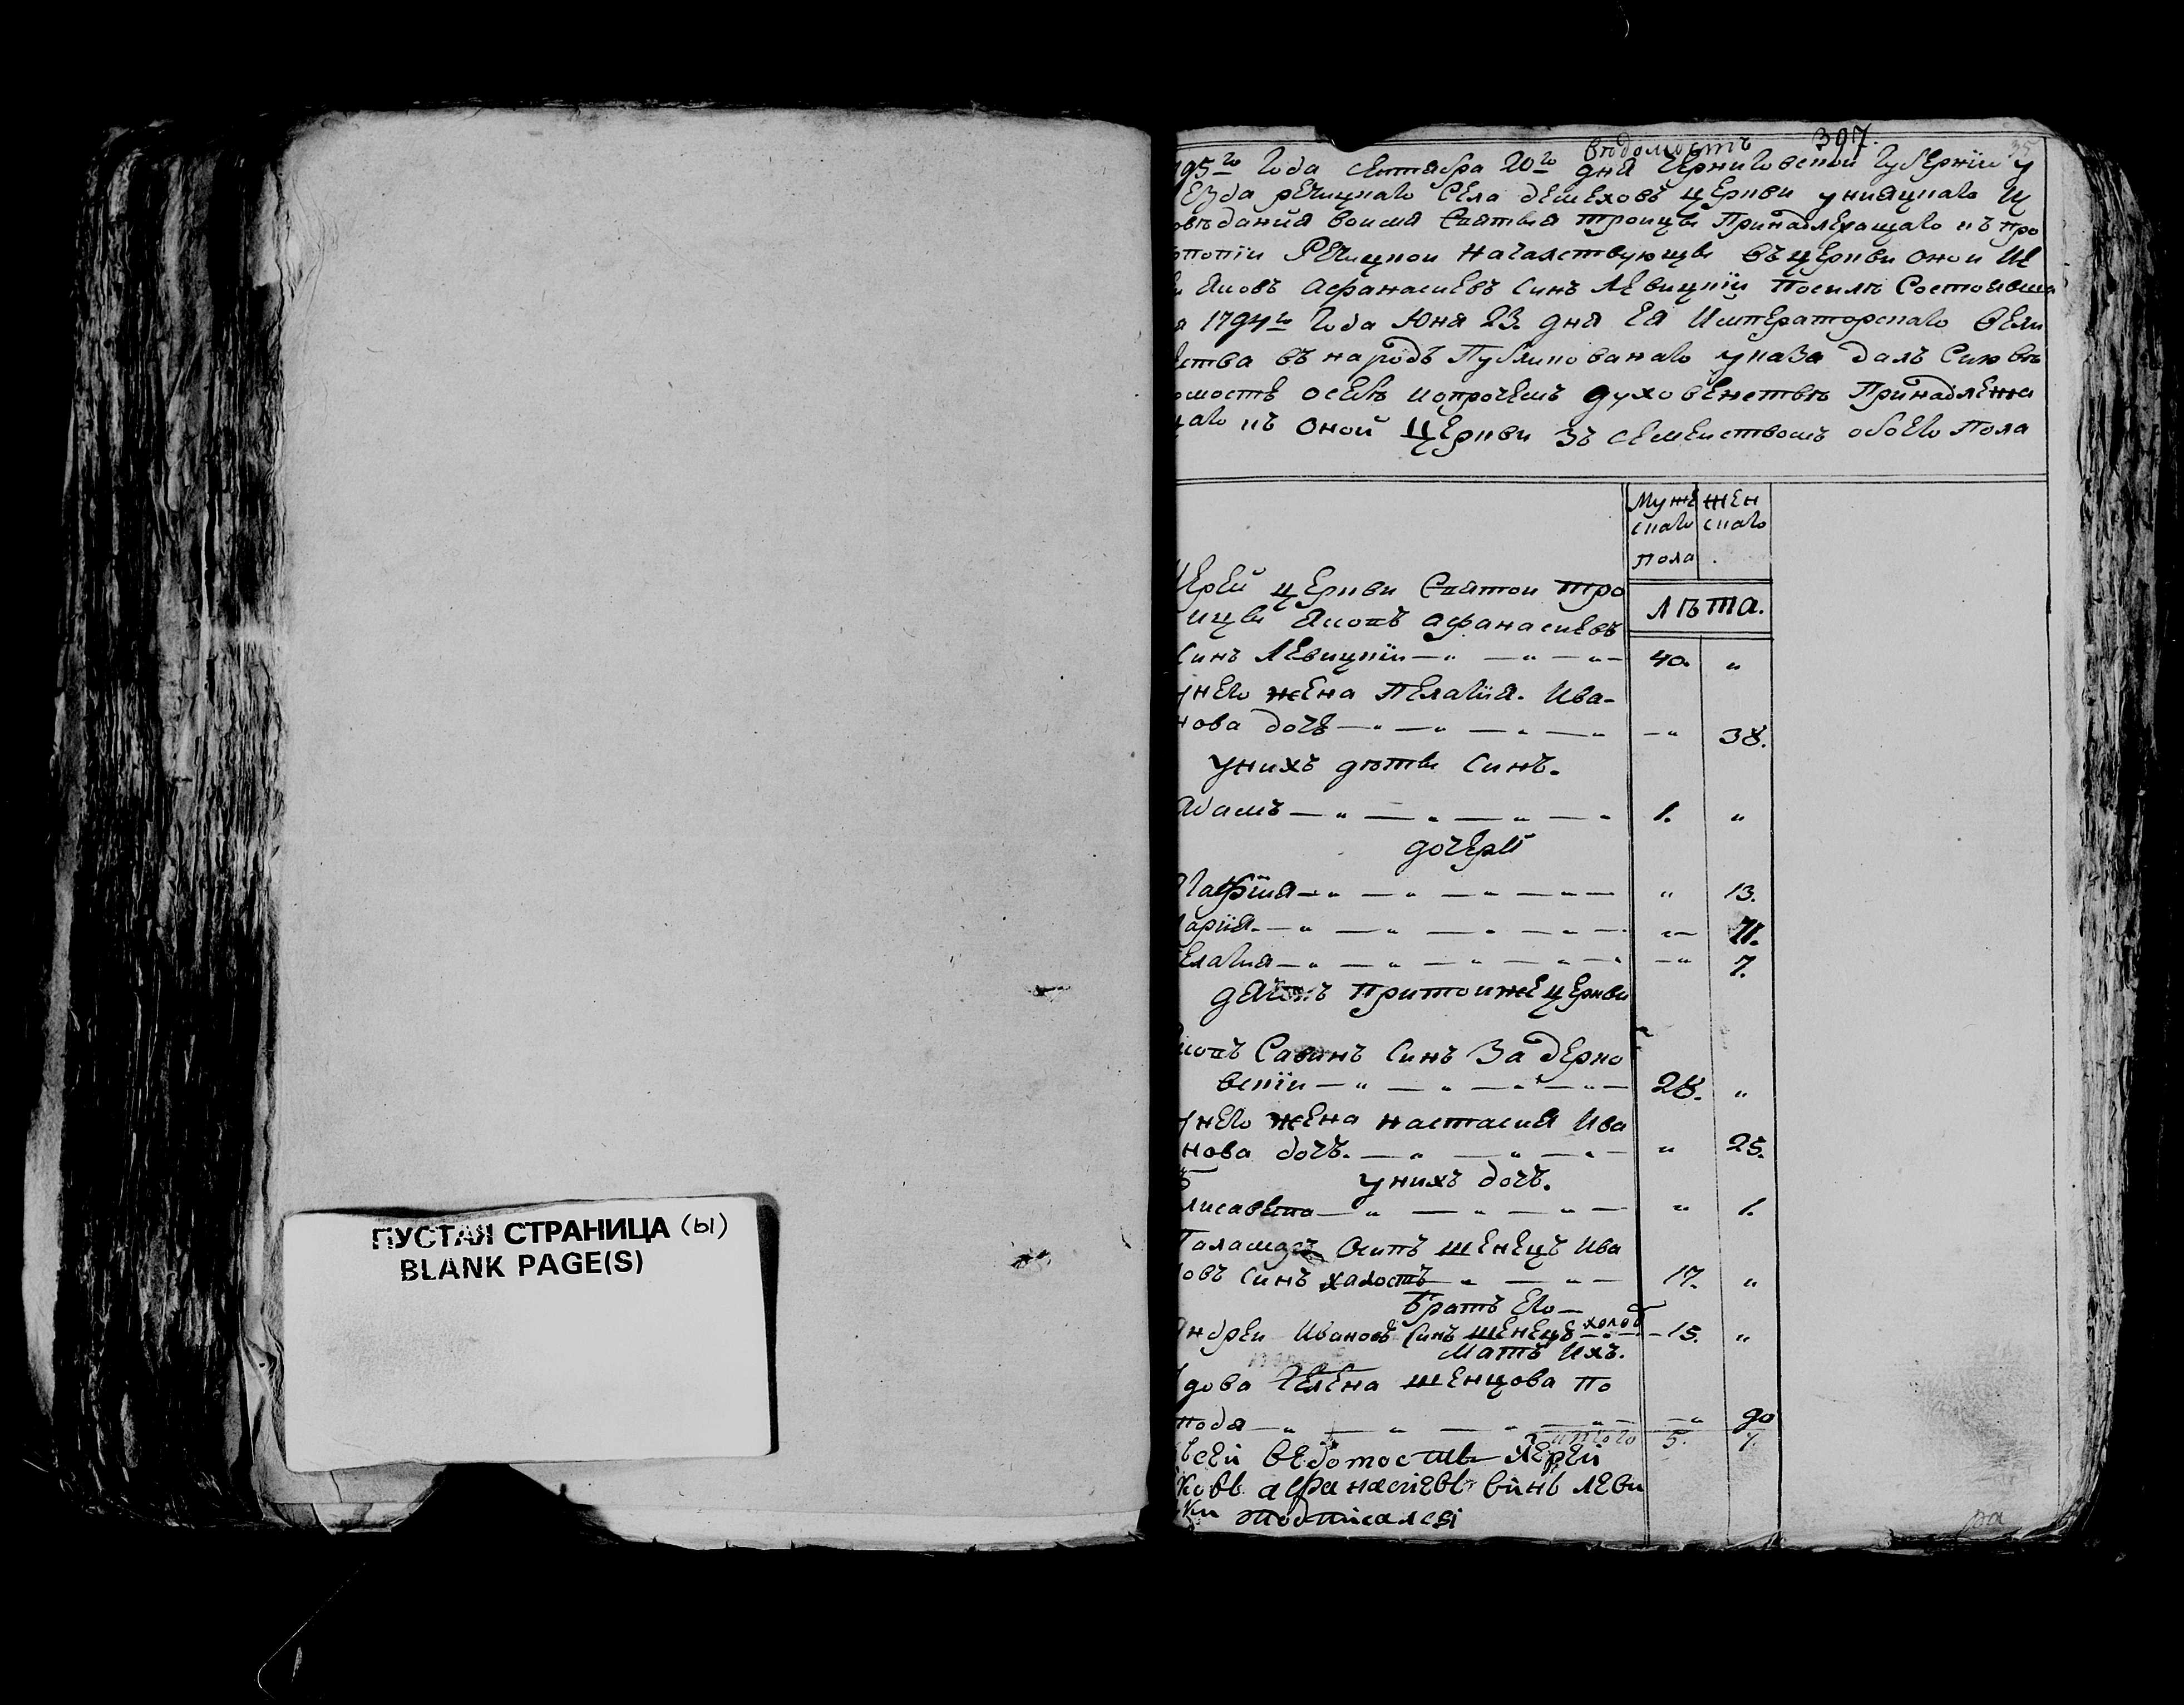 ПУСТАЯ СТРАНИЦА (ы)
BLANK PAGE(S)
вѣдомость 397. 35
795го года сентября 20го дня Черниговской губернiи у
езда речицкаго села демеховъ церкви унияцкаго и
овѣдания воимя святыя троицы Принадлежащаго къ про
опопiи Речицкои началствующы въ церкви онои Ие
Яковъ афанасиевъ синъ Левицкiй Посилѣ Состоявша
я 1794го года Юня 23. дня Ея Императорскаго Вели
ества въ народъ Публикованаго указа далъ Сию вѣ
омость осебѣ ипрочемъ духовенствѣ Принадлежа
щаго къ оной Церкви зъ семействомъ обоего Пола
Муже жен
скаго скаго
пола .
Иерей церкви Святои тро
ицы Яковъ афанасиевъ
лѣта.
Синъ Левицкiи — „ — „ — „ — 40. „
унего жена Пелагiя. Ива-
нова дочь — „ — „ — „ — „ — „ 38.
унихъ дѣты синъ.
Адамъ — „ — „ — „ — „ 1. „
дочери
Агафiия — „ — „ — „ — „ — „ 13.
Марiя. — „ — „ — „ — „ — „ — 11.
Пелагия — „ — „ — „ — „ — „ — „ 7.
дячокъ притоиже церкви
Яковъ Савинъ синъ Задерко
вскiи — „ — „ — „ — „ — 28. „
унего жена настасия Ива
нова дочь. — „ — „ — „ — „ 25.
унихъ дочь.
Елисавета — „ — „ — „ — „ 1.
Паламаръ Осипъ шенецъ Ива
новъ синъ халостъ „ — „ — 17. „
братъ его —
Андреи Ивановъ синъ шенецъ холос — „ — 15. „
Мать Ихъ.
Вдова Елена шенцова По
подя — „ — „ — „ — „ — — „ 90
итого 5. 7.
Ксеи ведомосты Иереи
Яковь афанасiевь синь Леви
цки подписалсяi
ра